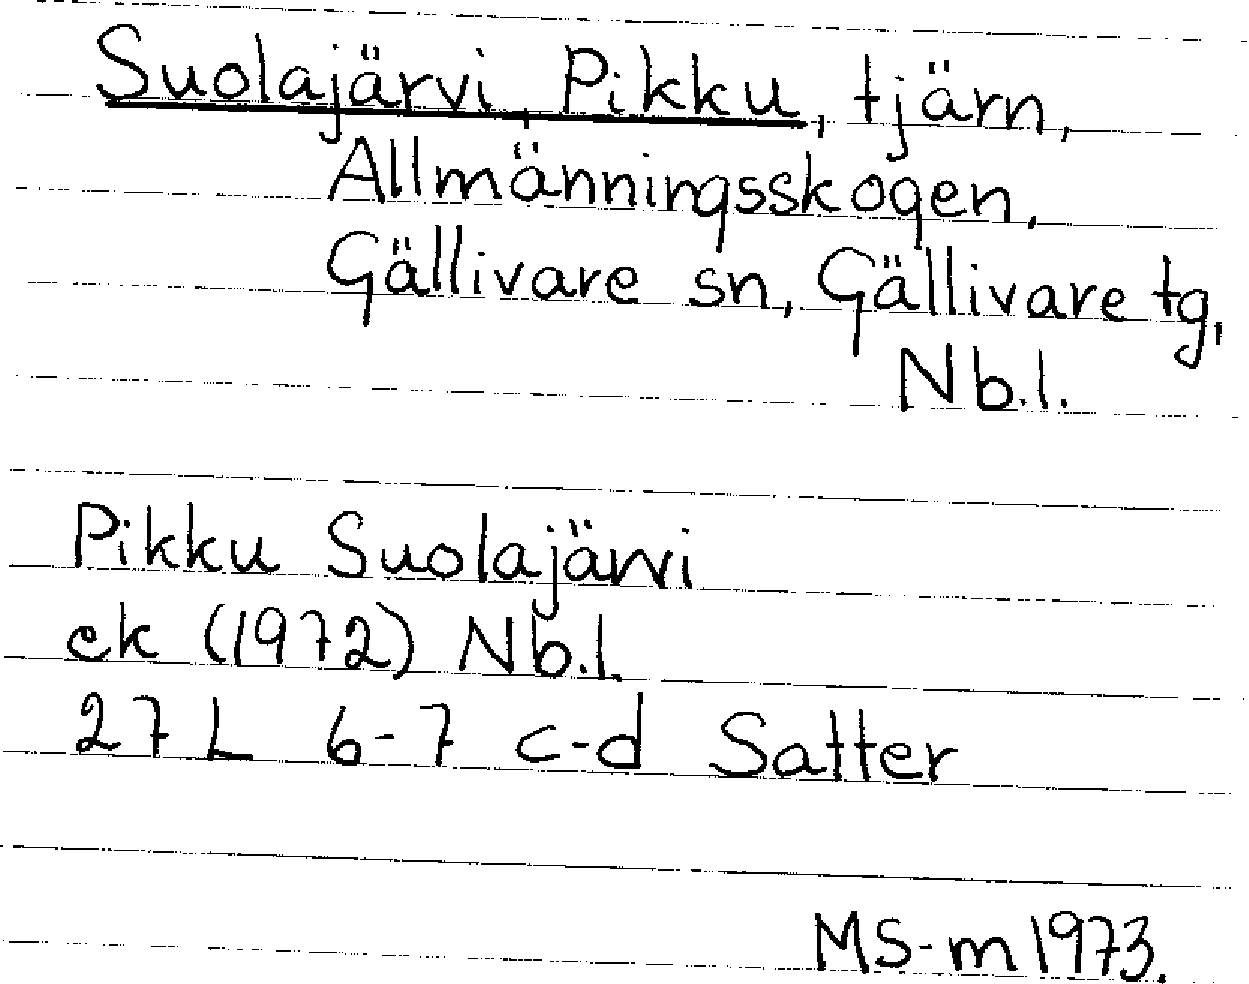 Suolajärvi, Pikku, tjärn,
Allmänningsskogen,
Gällivare sn, Gällivare tg,
Nb.l.
Pikku Suolajärvi
ek (1972) Nb.l.
27 L 6-7 c-d Satter
MS-m 1973.